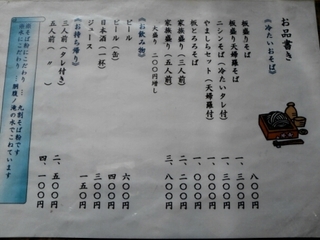 お品書き
《冷たいおそば》
板盛りそば 八〇〇円
板盛り天婦羅そば 一、三〇〇円
ニシンそば(冷たいタレ付) 一、三〇〇円
やましらセット(天婦羅付)
板とろろそば 一、〇〇〇円
家族盛り(三人前) 二、二〇〇円
家族盛り(五人前) 三、八〇〇円
大盛り 二〇〇円増し
《お飲み物》
ビール 六〇〇円
ビール(缶) 四〇〇円
日本酒(一杯) 三〇〇円
ジュース 一五〇円
《お持ち帰り》
三人前(タレ付き) 二、五〇〇円
五人前(〃) 四、一〇〇円
そば粉にこだわり… 九割そば粉です
お水にこだわり… 滝の水でこねています